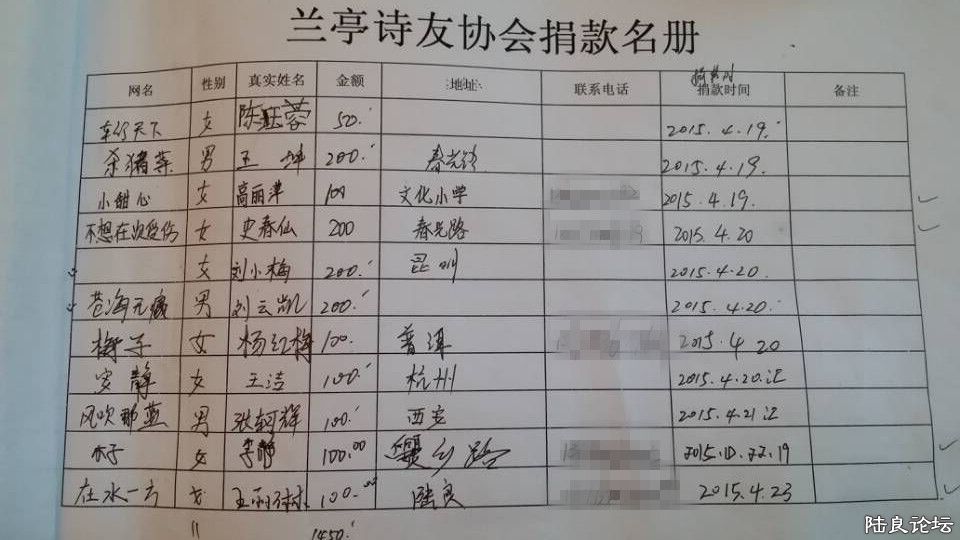 兰亭诗友协会捐款名册
网名 性别 真实姓名 金额 地址 联系电话 捐款时间 备注
车行天下 女 陈旺蓉 50. 2015.4.19.
杀猪菜 男 王坤 200. 春光路 2015.4.19.
小甜心 女 高丽萍 100 文化小学 2015.4.19.
不想在次受伤 女 史春仙 200 春光路 2015.4.20
女 刘小梅 200. 昆明 2015.4.20.
苍海无痕 男 刘云凯 200. 2015.4.20.
梅子 女 杨红梅 100. 普洱 2015.4.20
安静 女 王洁 100. 杭州 2015.4.20.汇
风吹那蓝 男 张轲辉 100. 西安 2015.4.21汇
木子 女 李静 100.00 爨乡路
在水一方 女 100.00 陆良 2015.4.23
11 1450.
陆良论坛